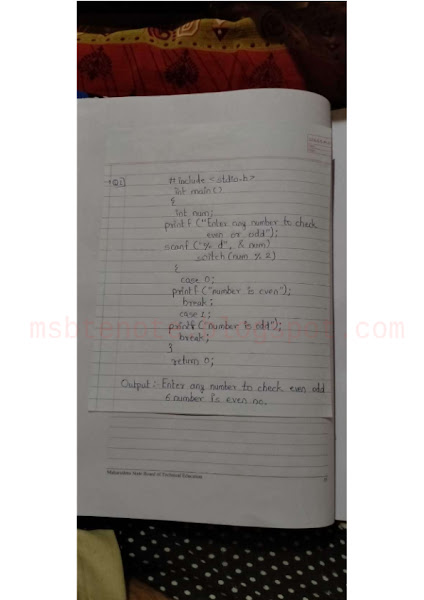 Q1]
#include <stdio.h>
int main()
{
int num;
printf ("Enter any number to check
even or odd");
scanf ("% d", & num)
switch (num % 2)
{
case 0:
printf ("number is even");
break;
case 1:
printf ("number is odd");
break;
}
return 0;
Output :- Enter any number to check even odd
6 number is even no.
Maharashtra State Board of Technical Education